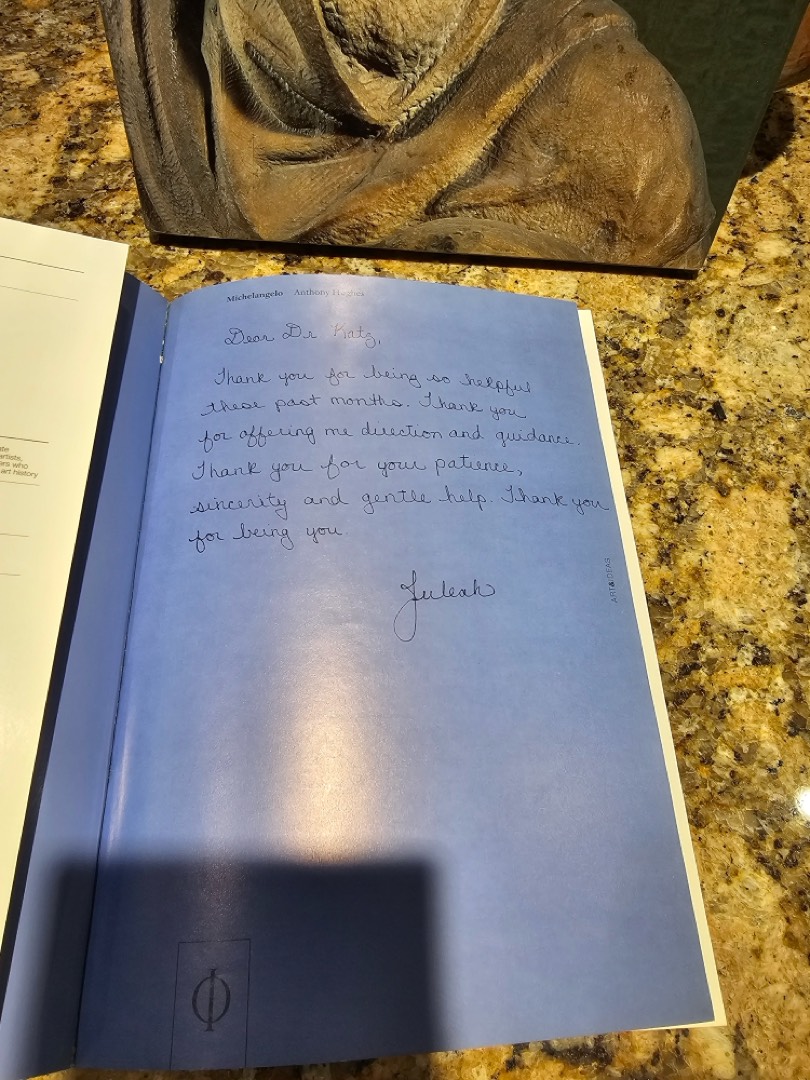 Michelangelo Anthony Hughes
Dear Dr Katz,
Thank you for being so helpful
these past months. Thank you
for offering me direction and guidance.
Thank you for your patience,
sincerity and gentle help. Thank you
for being you.
Juleah
ART&IDEAS
artists,
ers who
art history
Φ